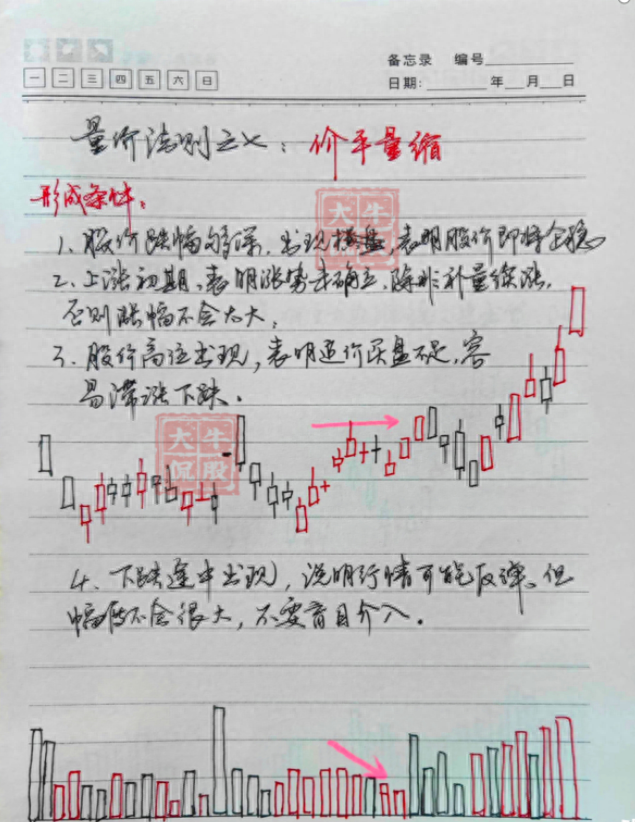 备忘录 编号
一 二 三 四 五 六 日
日期: 年 月 日
量价法则之七：价平量缩
形成条件：
大牛
1、股价跌幅够深，出现横盘，表明股价即将企稳
2、上涨初期，表明涨势未确立，除非补量续涨，
否则涨幅不会太大；
3、股价高位出现，表明追价买盘不足，容
易滞涨下跌．
大牛
侃股
4、下跌途中出现，说明行情可能反弹。但
幅度不会很大，不要盲目介入．